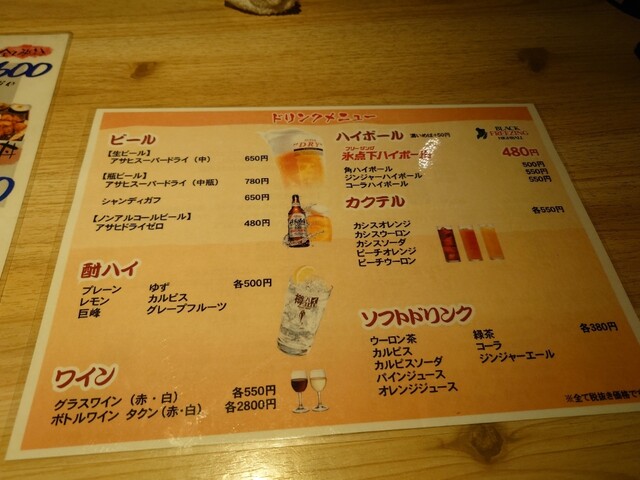 ドリンクメニュー
ビール
【生ビール】
アサヒスーパードライ（中） 650円
【瓶ビール】
アサヒスーパードライ（中瓶） 780円
シャンディガフ 650円
【ノンアルコールビール】
アサヒドライゼロ 480円
酎ハイ
プレーン ゆず 各500円
レモン カルピス
巨峰 グレープフルーツ
ワイン
グラスワイン（赤・白） 各550円
ボトルワイン タクン（赤・白） 各2800円
ハイボール 濃いめは+50円
BLACK
FREEZING
HIGHBALL
フリージング
氷点下ハイボール 480円
角ハイボール 500円
ジンジャーハイボール 550円
コーラハイボール 550円
カクテル 各550円
カシスオレンジ
カシスウーロン
カシスソーダ
ピーチオレンジ
ピーチウーロン
ソフトドリンク 各380円
ウーロン茶 緑茶
カルピス コーラ
カルピスソーダ ジンジャーエール
パインジュース
オレンジジュース
※全て税抜き価格です
DRY
600
丼